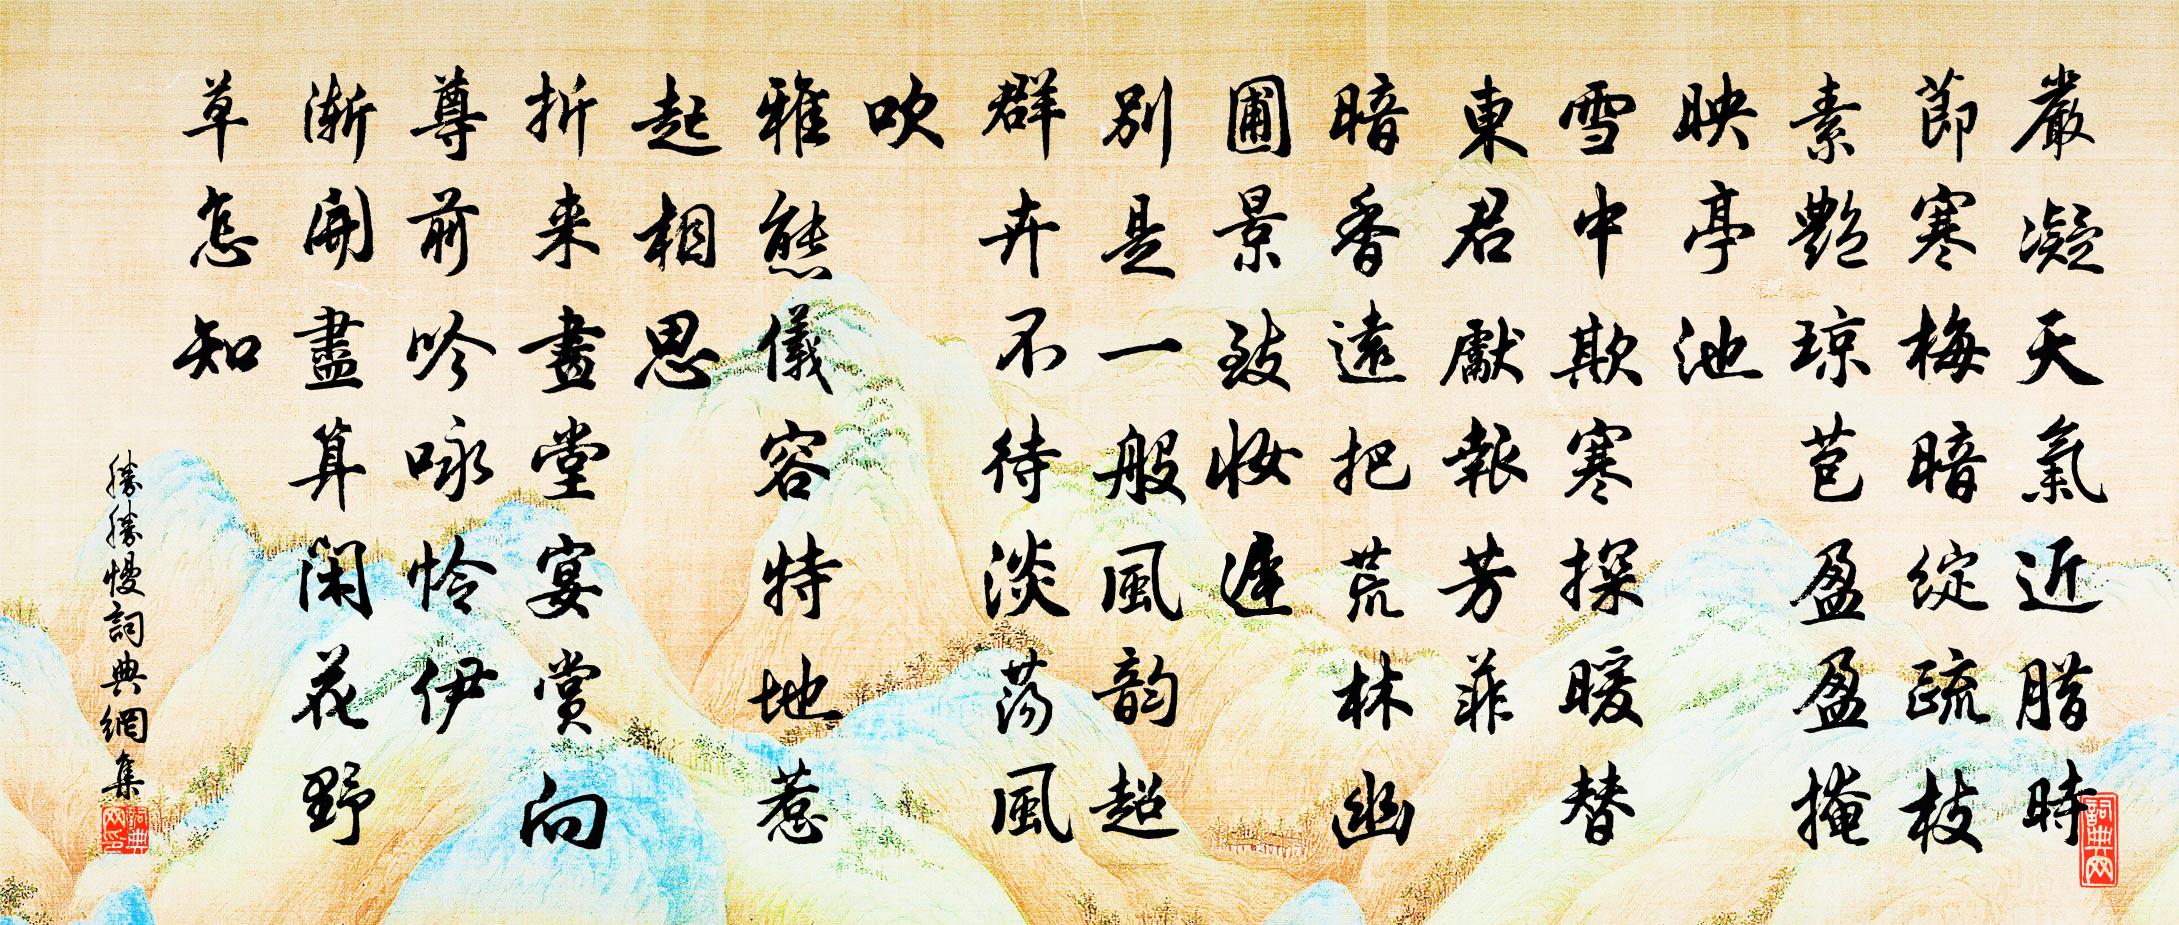 嚴凝天氣近腊時
節寒梅暗綻疏枝
素艷琼苞盈盈掩
映亭池
雪中欺寒探暖替
東君獻報芳菲
暗香遠把荒林幽
圃景致妝遲
別是一般風韵超
群卉不待淡荡風
吹
雅態儀容特地惹
起相思
折来畫堂宴賞向
尊前吟咏怜伊
渐開盡算闲花野
草怎知
勝勝慢詞典網集
詞典网
詞典网印